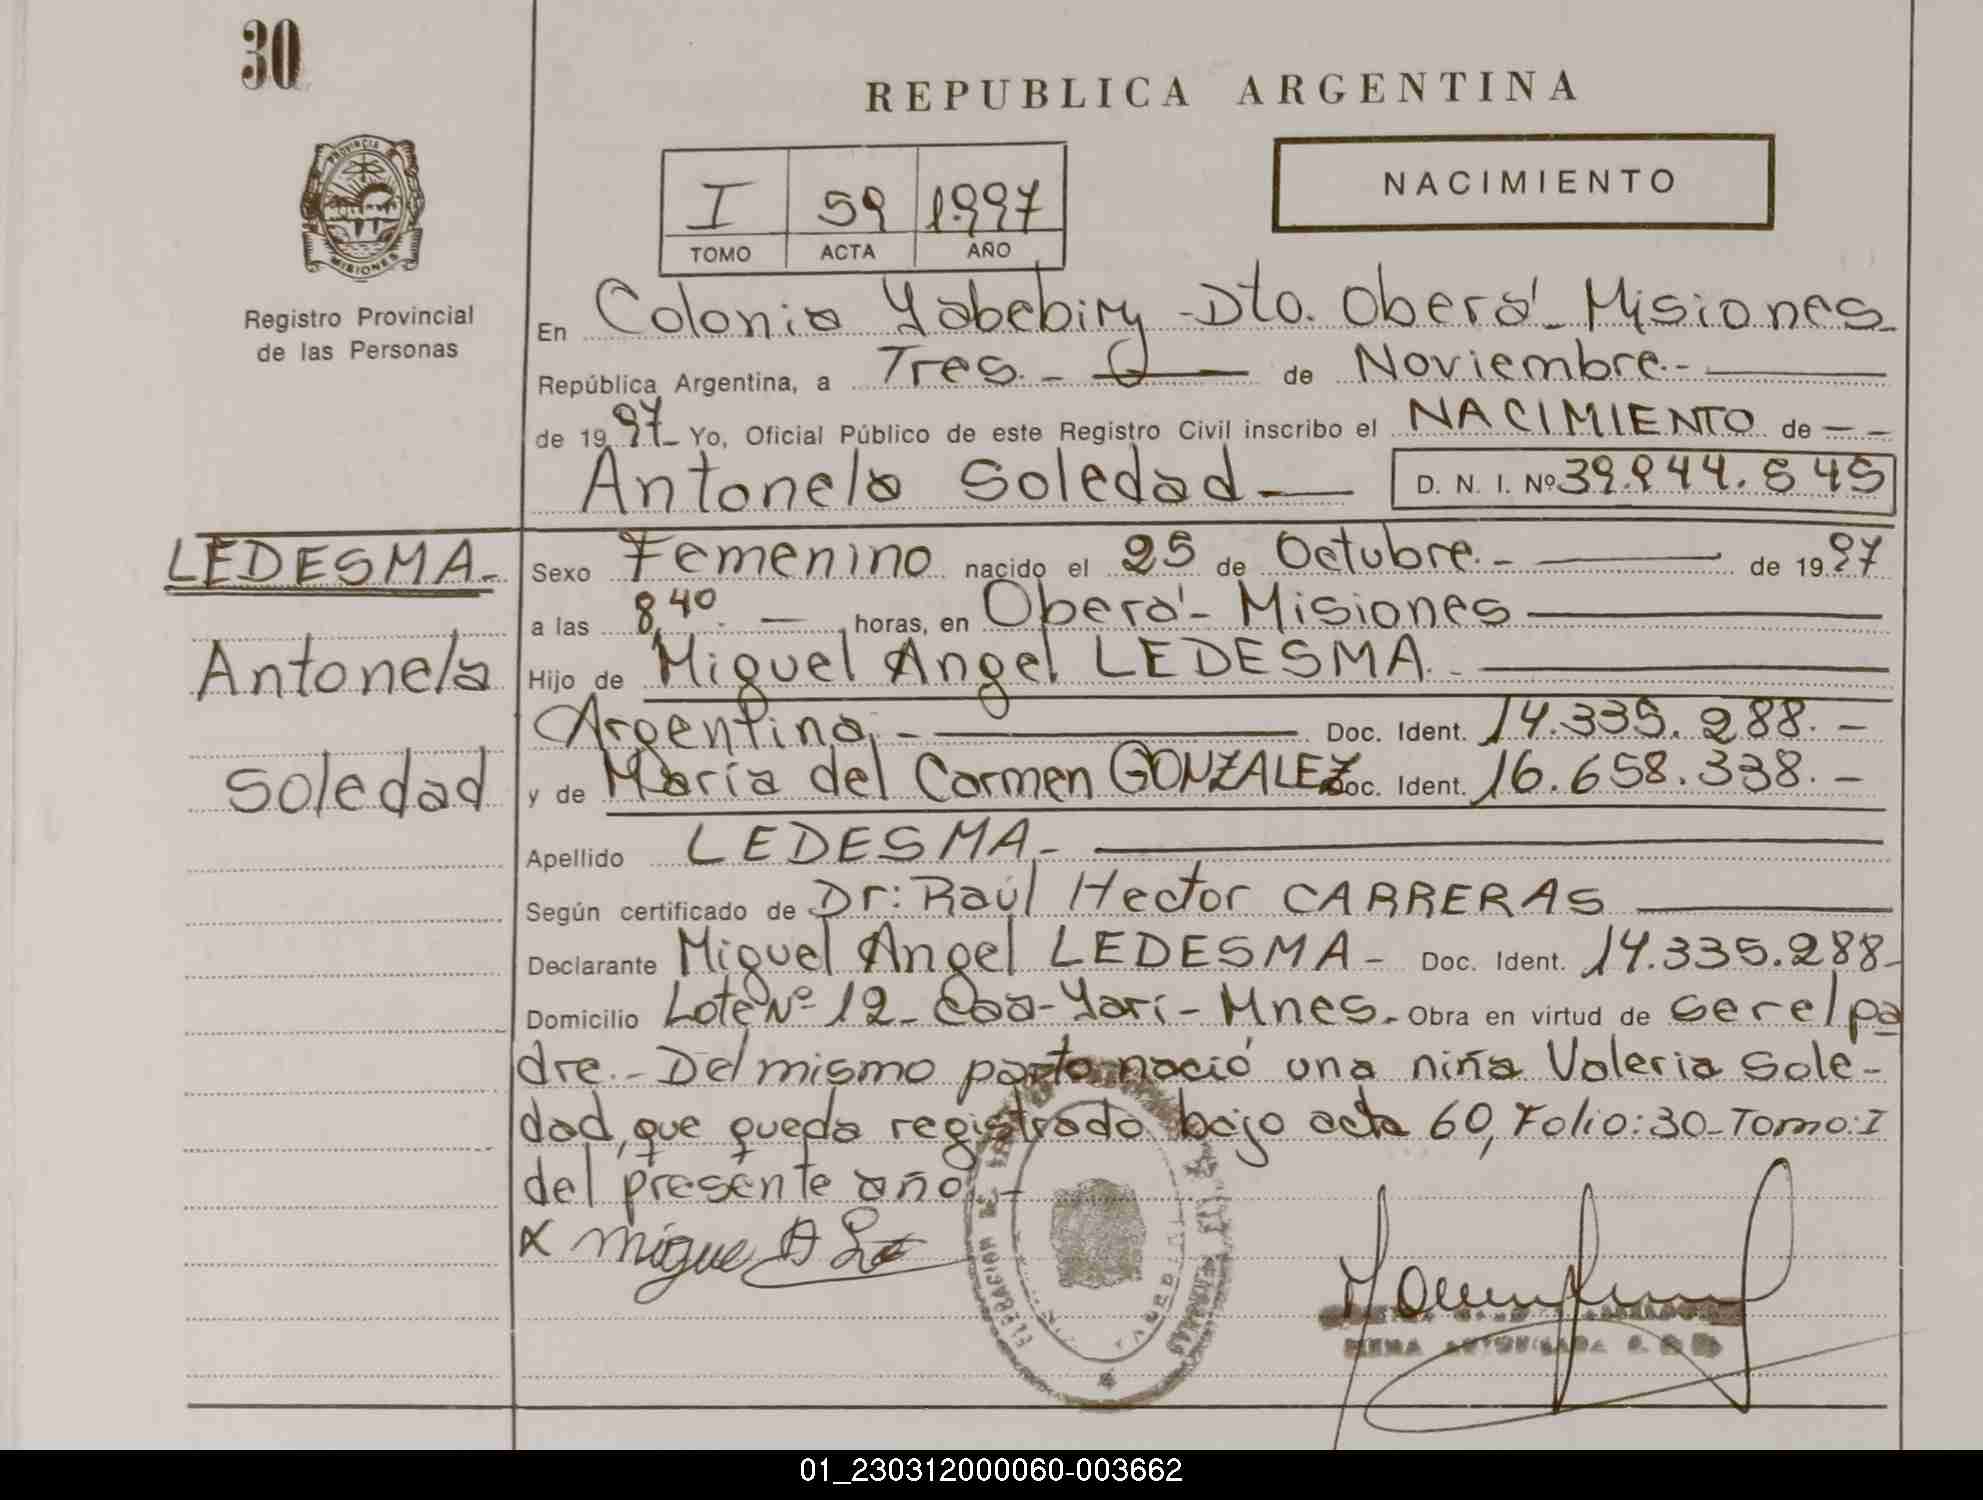 30
REPUBLICA ARGENTINA
PROVINCIA
MISIONES
Registro Provincial
de las Personas
I 59 1.997
TOMO ACTA AÑO
NACIMIENTO
En Colonia Yabebiry - Dto. Oberá - Misiones
República Argentina, a Tres.- de Noviembre.-
de 1997 - Yo, Oficial Público de este Registro Civil inscribo el NACIMIENTO de - -
Antonela Soledad - D. N. I. Nº
LEDESMA -
Antonela
Soledad
Sexo Femenino nacido el 25 de Octubre.- de 1997
a las 8,40. - horas, en Oberá - Misiones
Hijo de Miguel Angel LEDESMA.-
Argentina.- Doc. Ident. 14.335.288.-
y de María del Carmen GONZALEZ Doc. Ident. 16.658.338.-
Apellido LEDESMA -
Según certificado de Dr: Raúl Hector CARRERAS
Declarante Miguel Angel LEDESMA - Doc. Ident. 14.335.288-
Domicilio Lote Nº 12 - Caa-Yarí - Mnes. Obra en virtud de ser el pa
dre.- Del mismo parto nació una niña Valeria Sole-
dad, que queda registrado bajo acta 60, Folio: 30 - Tomo: I
del presente año.-
x Miguel A
01_230312000060-003662